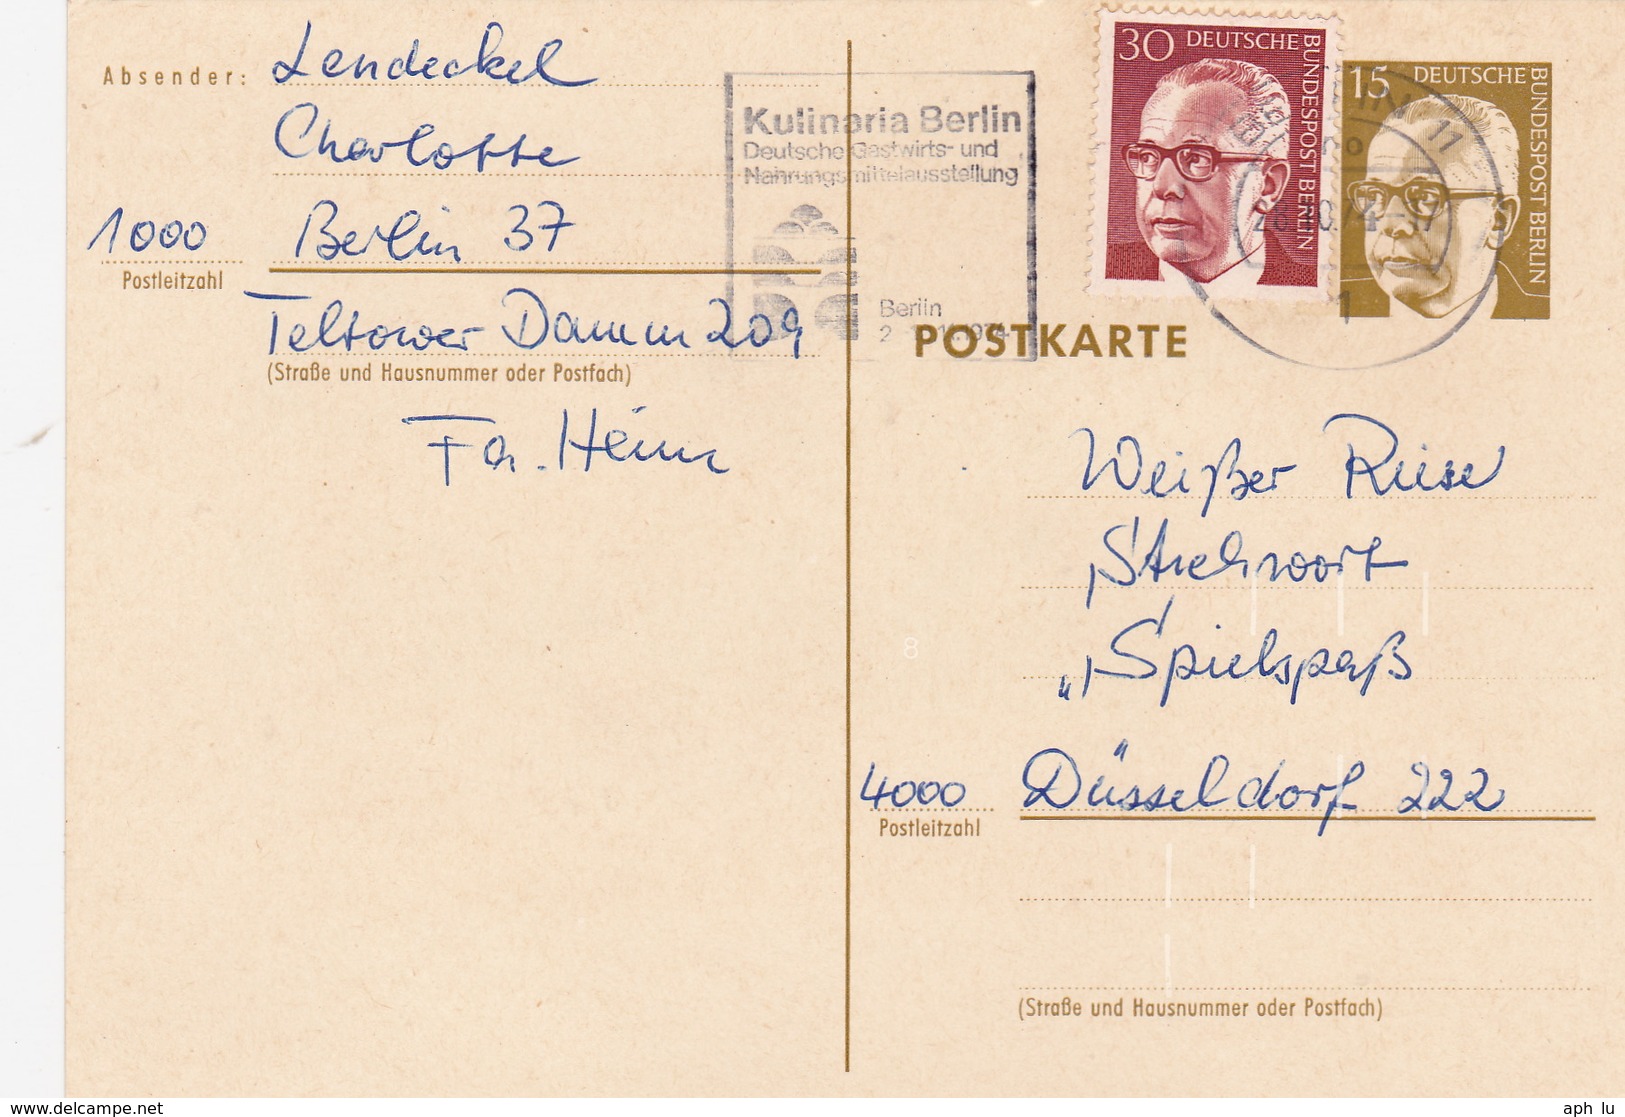 Absender: Lendeckel
Charlotte
1000 Berlin 37
Postleitzahl
Teltower Damm 209
(Straße und Hausnummer oder Postfach)
Fa. Heim
Kulinaria Berlin
Deutsche Gastwirts- und
Nahrungsmittelausstellung
Berlin
30 DEUTSCHE
BUNDESPOST BERLIN
15 DEUTSCHE
BUNDESPOST BERLIN
BERLIN 11
1
POSTKARTE
Weißer Riese
Stichwort
"Spielspaß
4000 Düsseldorf 222
Postleitzahl
(Straße und Hausnummer oder Postfach)
8
delcampe.net
aph lu